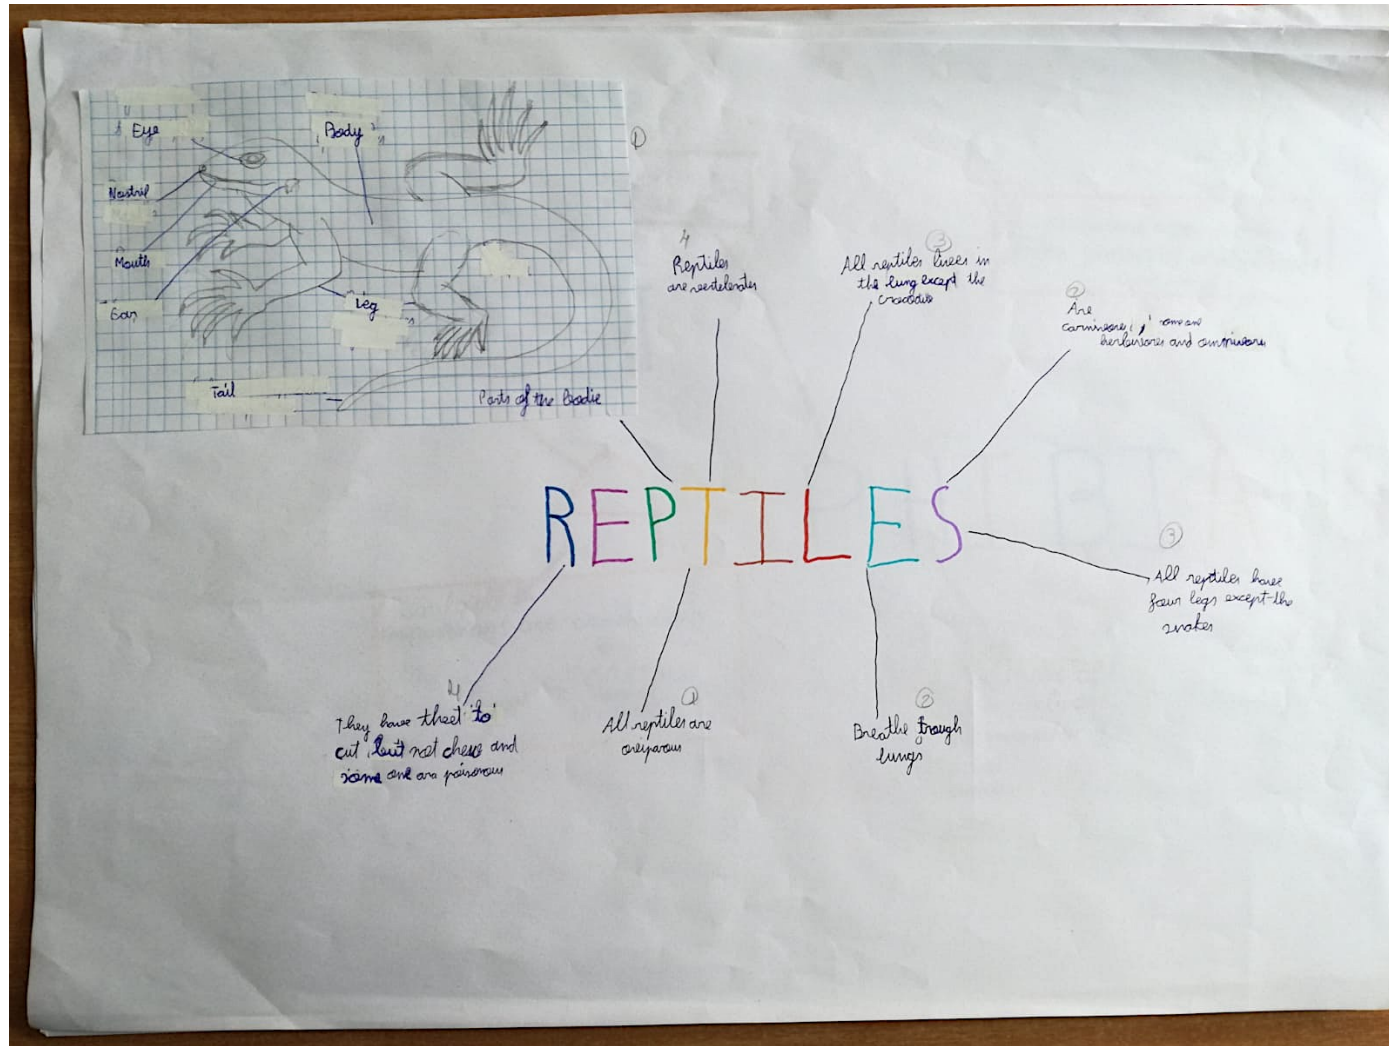 Eye
Body
Nostril
Mouth
Ear
Leg
Tail
Parts of the bodie
1
4
Reptiles
are vertebrates
3
All reptiles lives in
the lung except the
crocodile
2
Are
carnivore, some are
herbivores and omnivore
REPTILES
3
All reptiles have
four legs except the
snakes
4
They have theet to
cut but not chew and
some one are poisonous
1
All reptiles are
oviparous
2
Breathe trough
lungs